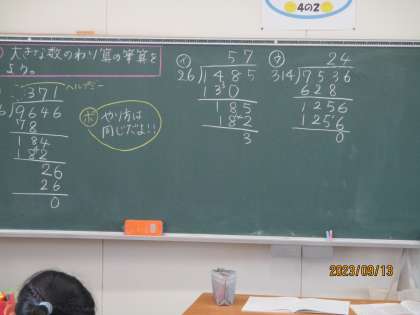 4の2
大きな数のわり算の筆算を
しよう。
ヘルプミー
371
6)9646
78
184
182
26
26
0
ポ やり方は
同じだよ!!
イ 57
26)1485
130
185
182
3
ウ 24
314)7536
628
1256
1256
0
2023/09/13